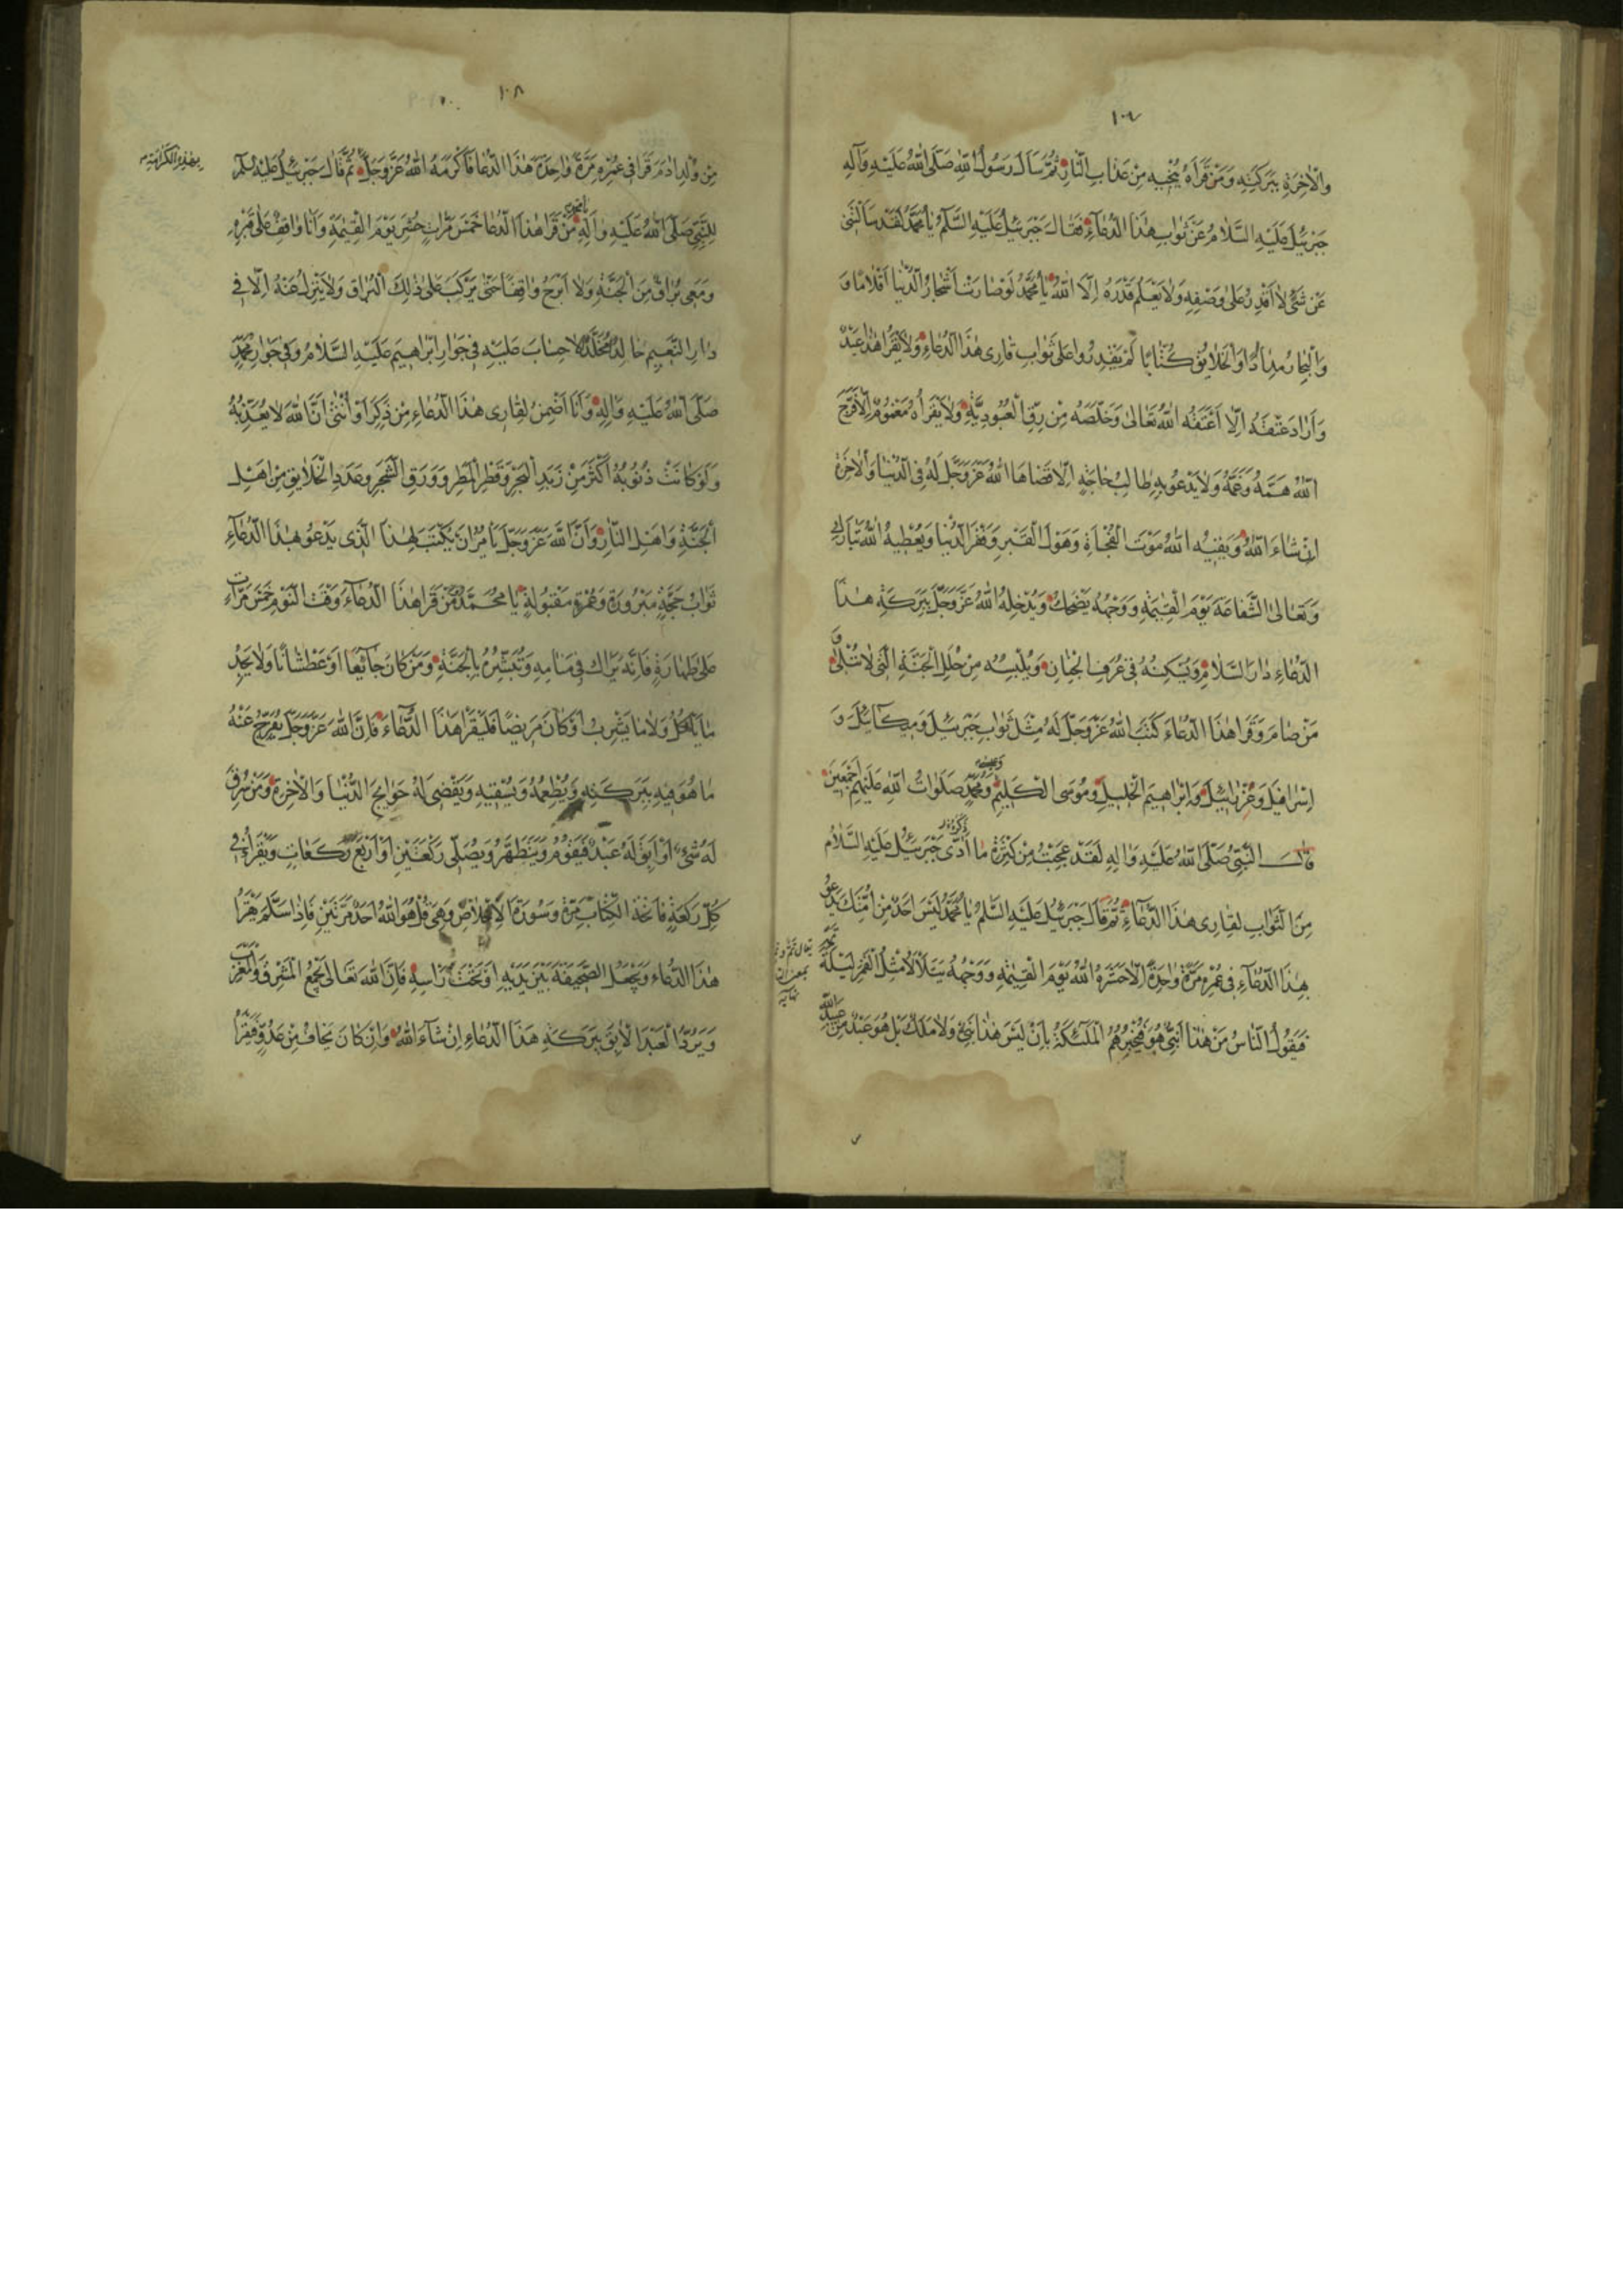 ١٠٧
والاخرة ببركته ومن قراه ينجيه من عذاب النار ثم سال رسول الله صلى الله عليه وآله
جبرئيل عليه السلام عن ثواب هذا الدعاء فقال جبرئيل عليه السلم يا محمد لقد سالتني
عن شئ لا اقدر على وصفه ولا يعلم قدره الا الله يا محمد لو صارت اشجار الدنيا اقلاما و
والبحار مدادا والخلايق كتابا لم يقدروا على ثواب قارى هذا الدعاء ولا يقرا هذا عبد
واراد عتقه الا اعتقه الله تعالى وخلصه من رق العبودية ولا يقراه مغموم الا فرج
الله همه وغمه ولا يدعو به طالب حاجة الا قضاها الله عز وجل له فى الدنيا والاخرة
ان شاء الله ويقيه الله موت الفجاة وهول القبر وفقر الدنيا ويعطيه الله تبارك
وتعالى الشفاعة يوم القيمة ووجهه يضحك ويدخله الله عز وجل ببركة هذا
الدعاء دار السلام ويسكنه فى غرف الجنان ويلبسه من حلل الجنة التى لا تبلى و
من صام وقرا هذا الدعاء كتب الله عز وجل له مثل ثواب جبرئيل وميكائيل و
اسرافيل وعزرائيل وابراهيم الخليل وموسى الكليم وعيسى ومحمد صلوات الله عليهم اجمعين
قال النبى صلى الله عليه واله لقد عجبت من كثرة ما ادى جبرئيل عليه السلام
من الثواب لقارى هذا الدعاء ثم قال جبرئيل عليه السلم يا محمد ليس احد من امتك يدعو
بهذا الدعاء فى عمره مرة واحدة الا حشره الله يوم القيمة ووجهه يتلألأ مثل القمر ليلة
فيقول الناس من هذا انبى هو فيخبرهم الملئكة بان ليس هذا نبى ولا ملك بل هو عبد من عبيد الله
١٠٨
من ولد ادم قرا فى عمره مرة واحدة هذا الدعا فاكرمه الله عز وجل ثم قال جبرئيل عليه السلم
بهذه الكرامة
للنبى صلى الله عليه واله يا محمد من قرا هذا الدعا خمس مرات حشر يوم القيمة وانا واقف على قبره
ومعى براق من الجنة ولا ابرح واقفا حتى يركب على ذلك البراق ولا ينزل عنه الا فى
دار النعيم خالد مخلد لا حساب عليه فى جوار ابراهيم عليه السلام وفى جوار محمد
صلى الله عليه واله وانا اضمن لقارى هذا الدعاء من ذكر او أنثى ان الله لا يعذبه
ولو كانت ذنوبه اكثر من زبد البحر وقطر المطر وورق الشجر وعدد الخلايق من اهل
الجنة واهل النار وان الله عز وجل يامر ان يكتب لهذا الذى يدعو بهذا الدعاء
ثواب حجة مبرورة وعمرة مقبولة يا محمد من قرا هذا الدعاء وقت النوم خمس مرات
على طهارة فانه يراك فى منامه وتبشره بالجنة ومن كان جائعا او عطشانا ولا يجد
ما ياكل ولا ما يشرب او كان مريضا فليقرا هذا الدعاء فان الله عز وجل يفرج عنه
ما هو فيه ببركته ويطعمه ويسقيه ويقضى له حوايج الدنيا والاخرة ومن سرق
له شئ او ابق له عبد فيقوم ويتطهر ويصلى ركعتين او اربع ركعات ويقرأ فى
كل ركعة فاتحة الكتاب مرة وسورة الاخلاص وهى قل هو الله احد مرتين فاذا سلم يقرا
هذا الدعاء ويجعل الصحيفة بين يديه او تحت راسه فان الله تعالى يجمع المشرق والمغرب
ويرد العبد الابق ببركة هذا الدعاء ان شاء الله وان كان يخاف من عدو فيقرا